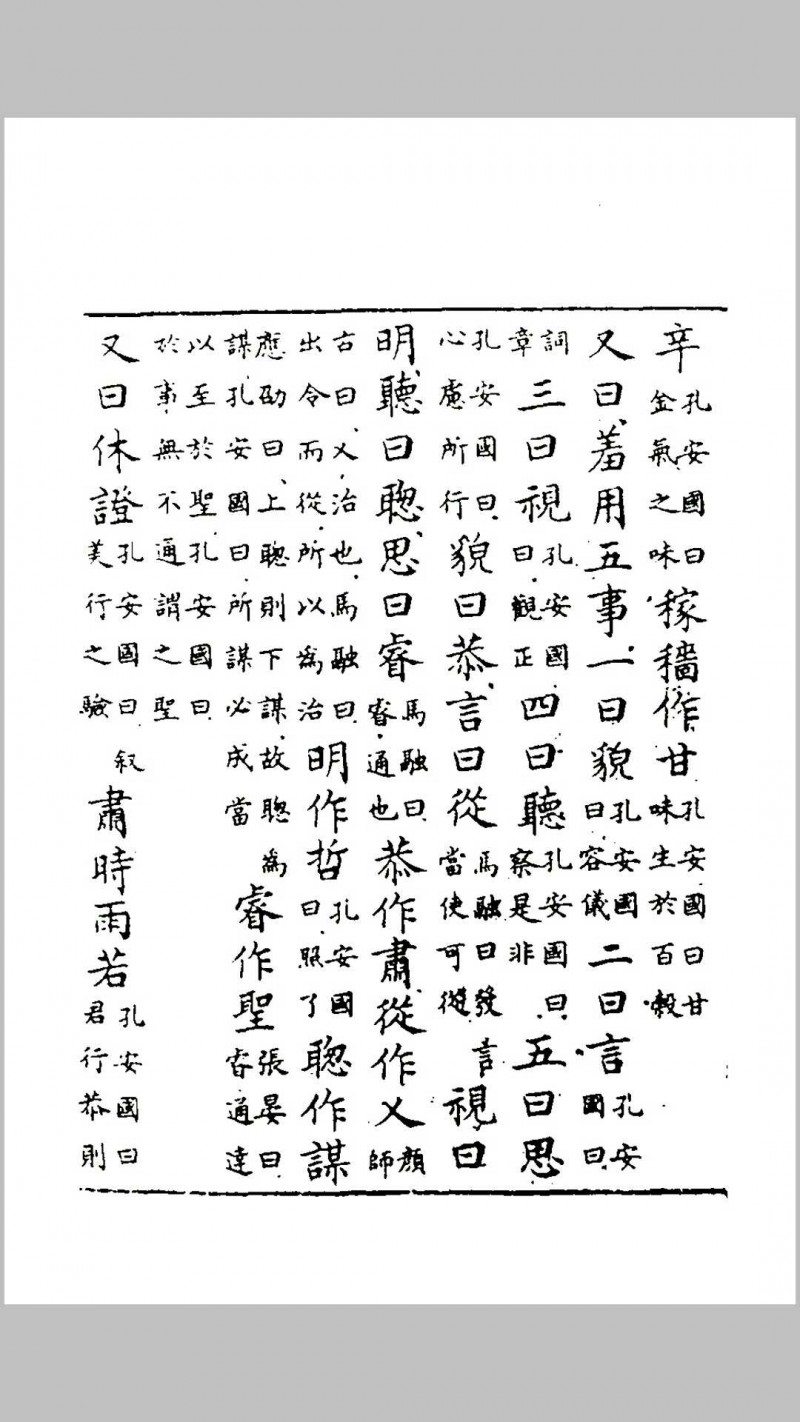 辛孔安國曰金氣之味稼穡作甘孔安國曰甘味生於百穀
又曰羞用五事一曰貌孔安國曰容儀二曰言孔安國曰
詞章三曰視孔安國曰觀正四曰聽孔安國曰察是非五曰思
孔安國曰心慮所行貌曰恭言曰從馬融曰發言當使可從視曰
明聽曰聦思曰睿馬融曰睿通也恭作肅從作乂顏師
古曰乂治也馬融曰出令而從所以為治明作哲孔安國曰照了聦作謀
應劭曰上聦則下謀故聦為謀孔安國曰所謀必成當睿作聖張晏曰睿通達
以至於聖孔安國曰於事無不通謂之聖
又曰休證孔安國曰叙美行之驗肅時雨若孔安國曰君行恭則